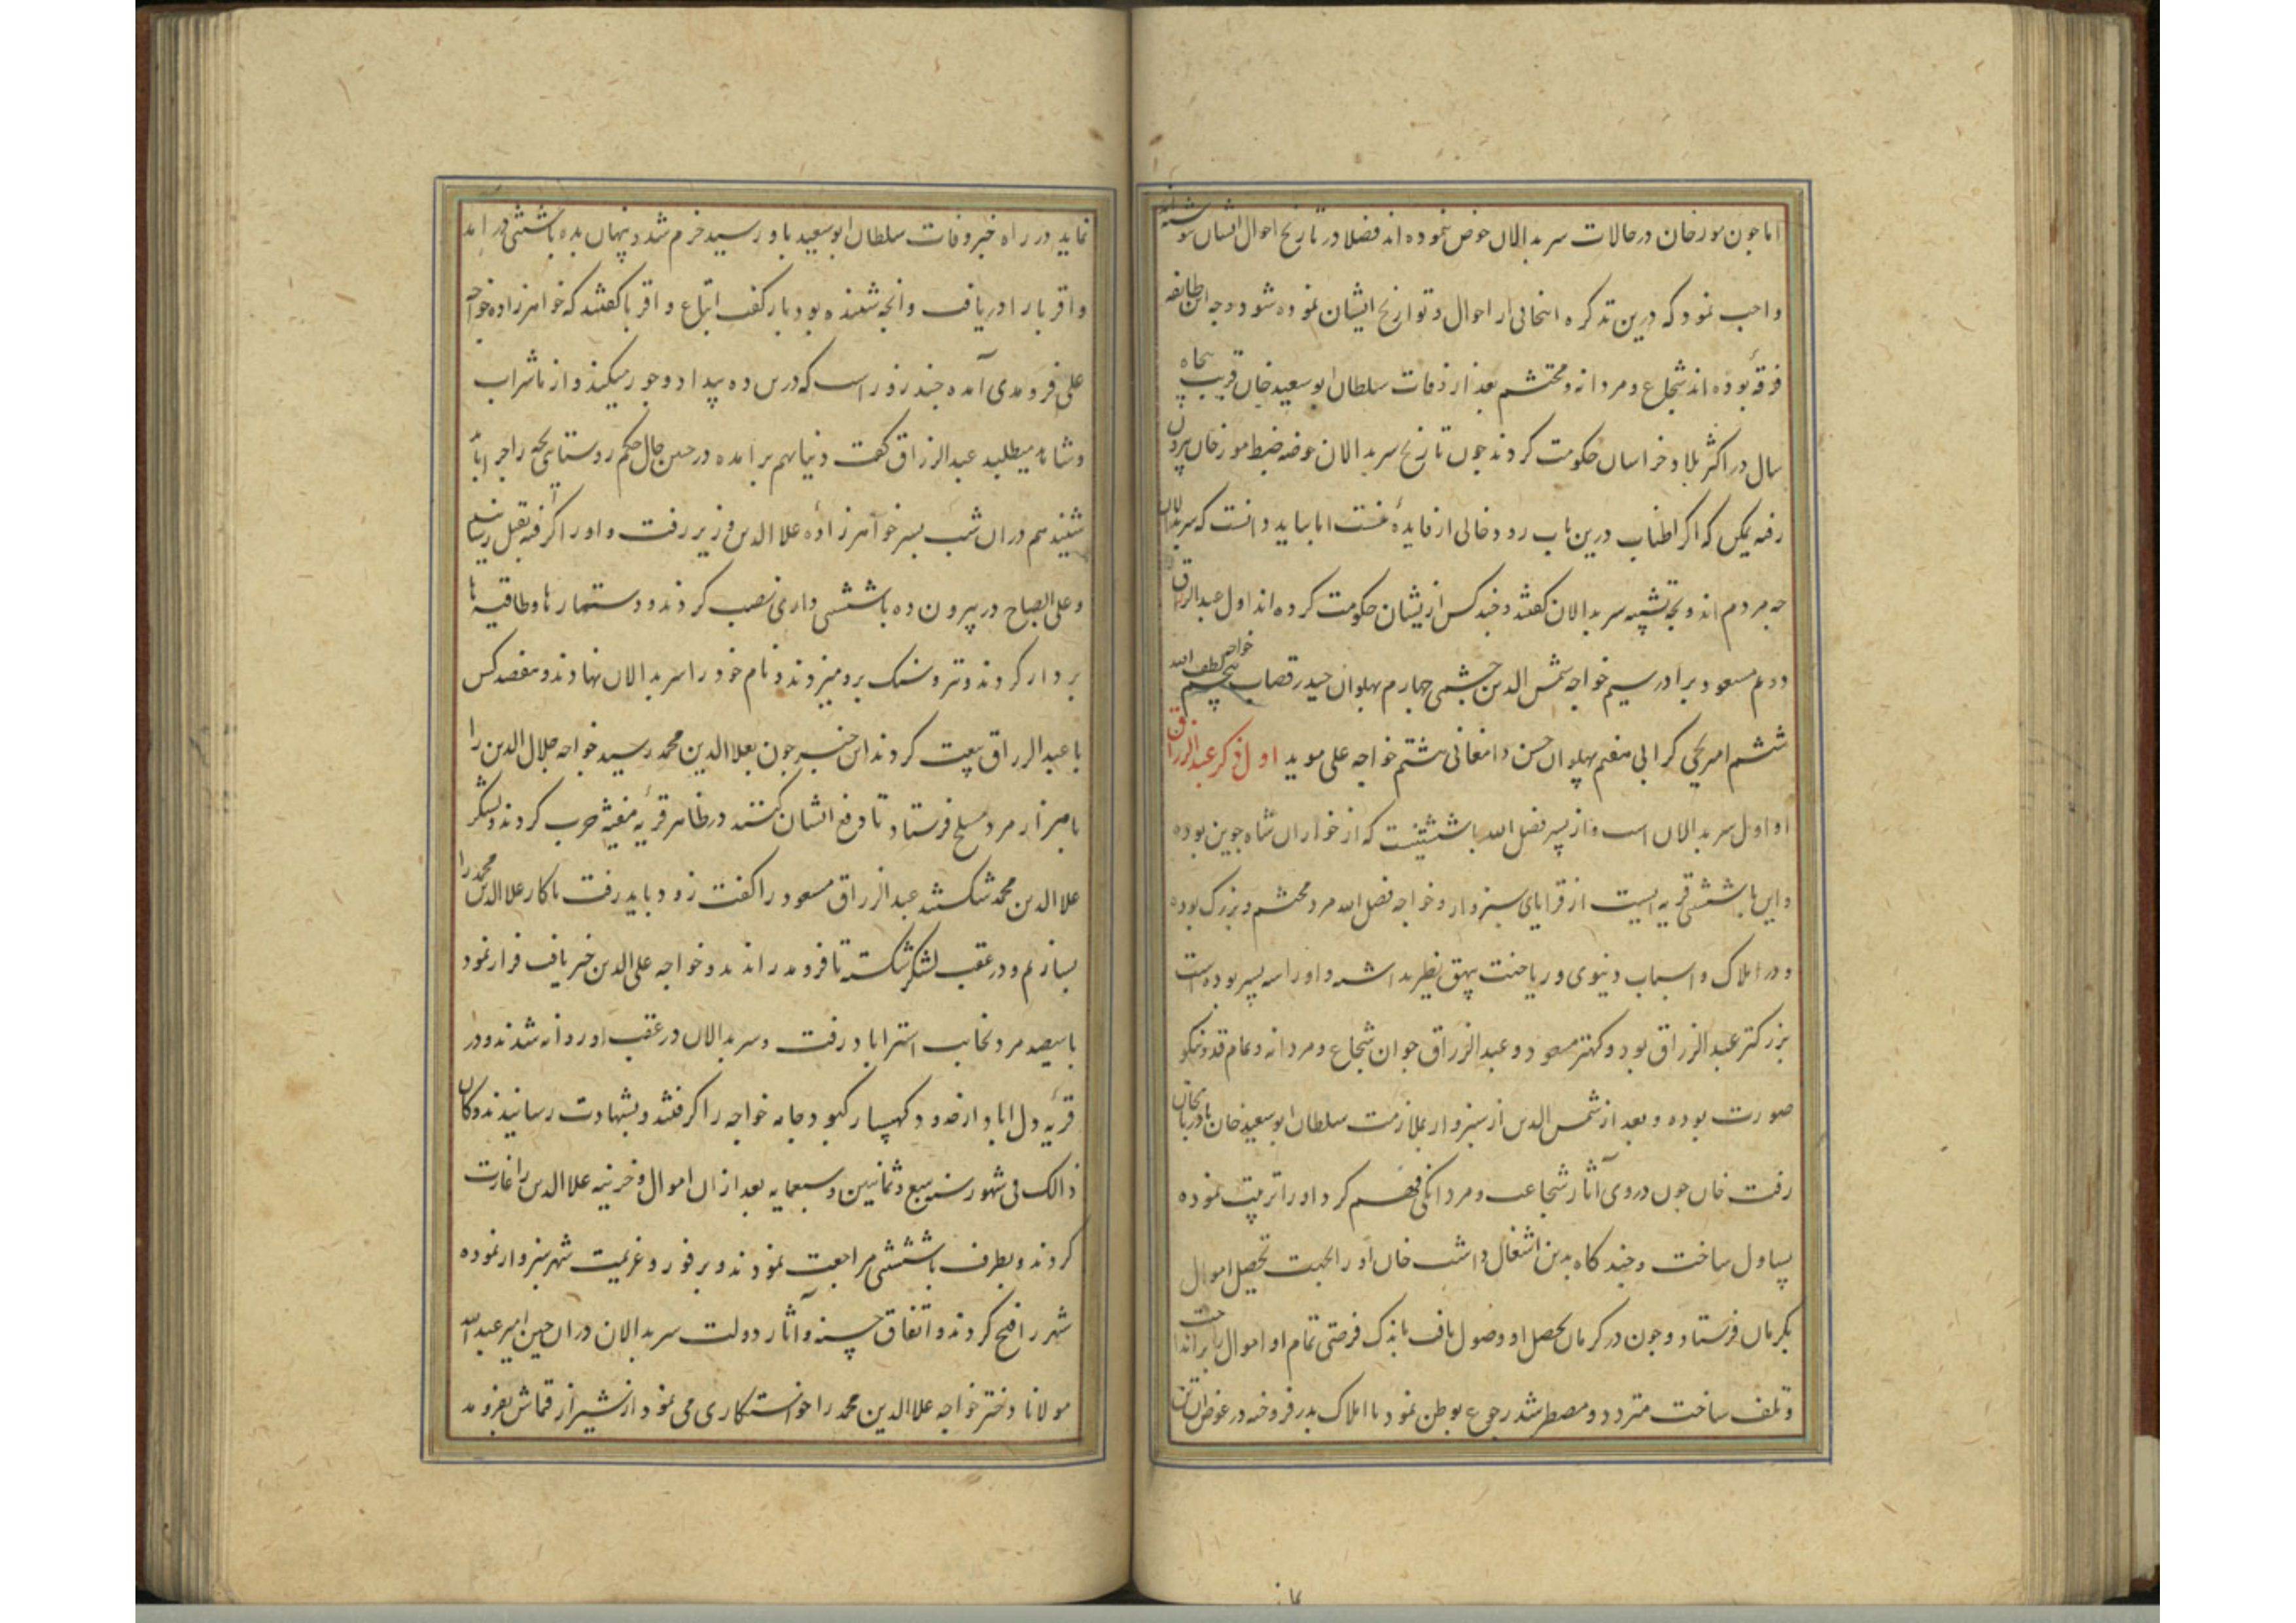 اما جون مورخان در حالات سر بدالان خوض نموده اند فضلا در تاریخ احوال ایشان
واجب نمود که درین تذکره انتخابی از احوال و تواریخ ایشان نموده شود و وجه این طایفه
فرقهٔ بوده اند شجاع و مردانه و محتشم بعد از وفات سلطان ابو سعید خان قریب پنجاه
سال در اکثر بلاد خراسان حکومت کردند جون تاریخ سر بدالان خوضه ضبط مورخان بیرون
رفته یمکن که اکر اطناب درین باب رود خالی از فایدهٔ نیست اما بباید دانست که سربدالان
جه مردم اند و بجه تشبیه سر بدالان کفتند و جند کس ازیشان حکومت کرده اند اول عبدالرزاق
دویم مسعود برادر سیم خواجه شمس الدین جشمی جهارم پهلوان حیدر قصاب پنجم خواجه لطف الله
ششم امیر یحیی کرابی هفتم پهلوان حسن دامغانی هشتم خواجه علی موید اول ذکر عبدالرزاق
او اول سر بدالان است و از پسر فضل الله باشتینست که از خواران شاه جوین بوده
و این باشتین قریه ایست از قرایای سبزوار و خواجه فضل الله مرد محتشم و بزرک بوده
و در املاک و اسباب دنیوی در ناحیت بیهق نظیر نداشته و او را سه پسر بوده است
بزرکتر عبدالرزاق بود و کهتر مسعود و عبدالرزاق جوان شجاع و مردانه و تمام قد و نیکو
صورت بوده و بعد از شمس الدین از سبزوار بملازمت سلطان ابو سعید خان باذربایجان
رفت خان جون در وی آثار شجاعت و مردانکی فهم کرد او را تربیت نموده
یساول ساخت و جند کاه بدین اشغال داشت خان او را بجهت تحصیل اموال
بکرمان فرستاد و جون در کرمان تحصیل او وصول یافت باندک فرصتی تمام او اموال را
و تلف ساخت متردد و مضطر شد رجوع بوطن نمود تا املاک بدر فروخته در عوض آن تن
نماید در راه خبر وفات سلطان ابو سعید باو رسید خرم شد و پنهان بده باشتین در امد
و اقربا را دریافت و انجه شنیده بود باز کفت اتباع و اقربا کفتند که خواهرزاده خواجه
علی فرومدی آمده جند روز است که درین ده بیداد و جور میکند و از ما شراب
و شاهد میطلبد عبدالرزاق کفت دنیا بهم برامده در حین حال حکم روستایی بجه را جرا باید
شنید هم دران شب بسر خواهرزادهٔ علا الدین وزیر رفت و او را کرفته بقتل رسانید
و علی الصباح در بیرون ده باشتین داری نصب کردند و دستارها و طاقیه ها
بر دار کردند و تیر و سنک برو میزدند و نام خود را سر بدالان نهادند و هفصد کس
با عبدالرزاق بیعت کردند این خبر جون بعلا الدین محمد رسید خواجه جلال الدین را
با هزار مرد مسلح فرستاد تا دفع ایشان کنند در ظاهر قریه مغیثه حرب کردند و لشکر
علا الدین محمد شکستند عبدالرزاق مسعود را کفت زود باید رفت تا کار علا الدین محمد را
بسازیم و در عقب لشکر شکسته تا فرومد راندند و خواجه علی الدین خبر یافت فرار نمود
با سیصد مرد بجانب استراباد رفت و سر بدالان در عقب او روانه شدند و در
قریه دل اباد از حدود کهسار کبود جامه خواجه را کرفتند و بشهادت رسانیدند و کان
ذالک فی شهور سنه سبع و ثمانین و سبعمایه بعد از ان اموال و خزینه علا الدین را غارت
کردند و بطرف باشتین مراجعت نمودند و بر فور عزیمت شهر سبزوار نموده
شهر را فتح کردند و اتفاق حسنه و آثار دولت سر بدالان دران حین امیر عبد الله
مولانا دختر خواجه علا الدین محمد را خواستکاری می نمود از شیراز قماش بفرومد